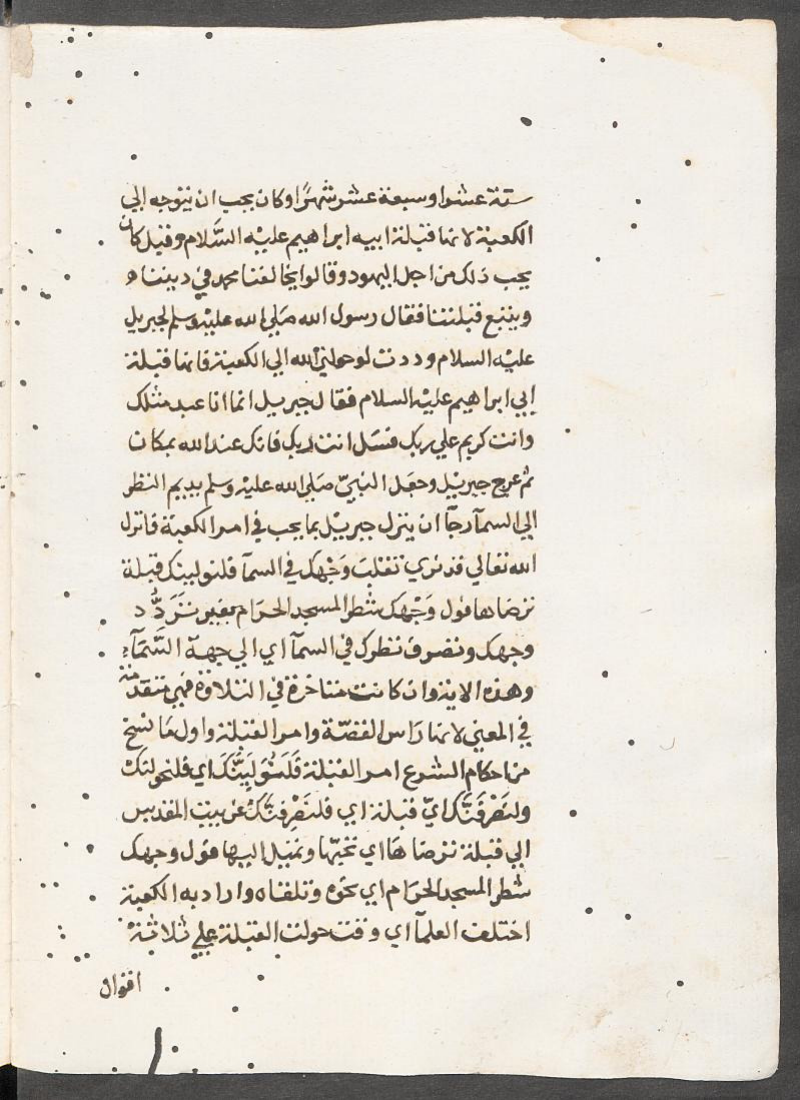 ستة عشر او سبعة عشر شهرًا وكان يجب ان يتوجه الي
الكعبة لانها قبلة ابيه ابراهيم عليه السَّلام وقيل كان
يجب ذلك من اجل اليهود وقالوا يخالفنا محمد في ديننا
ويتبع قبلتنا فقال رسول الله صَلي الله عليه وسلم لجبريل
عليه السلام وددت لو حولني الله الي الكعبة فانها قبلة
ابي ابراهيم عليه السلام فقال جبريل انما انا عبد مثلك
وانت كريم علي ربك فسَل انت ربك فانك عند الله بمكان
ثم عرج جبريل وجعل النبيّ صَلي الله عليه وسلم يديم النظر
الي السمآ رجآ ان ينزل جبريل بما يجب في امر الكعبة فانزل
الله تعالي قد نري تقلب وَجْهك في السمآ فلنولينك قبلة
ترضاها فول وَجْهك شطر المسجد الحرَام يعني تَرَدُّد
وجهك وتصرف نظرك في السمآ اي الي جهة السَّمَآءِ
وهذه الاية وان كانت متاخرة في التلاوة فهي متقدمة
في المعني لانها رَاس القصّة وامر القبلة واول مَا نسخ
من احكام الشرع امر القبلة فَلَنُوَلِيَنَّكَ اي فلنحولنك
ولنَصْرِفَنَّك ايّ قبلة اي فلنَصْرِفنَّك عن بيت المقدس
الي قبلة ترضاهَا اي تحبّها وتميل اليها فول وجهك
شطر المسجد الحرَام اي نحوه وتلقاه واراد به الكعبة
اختلف العلمآ اي وقت حولت القبلة علي ثلاثة
اقوال